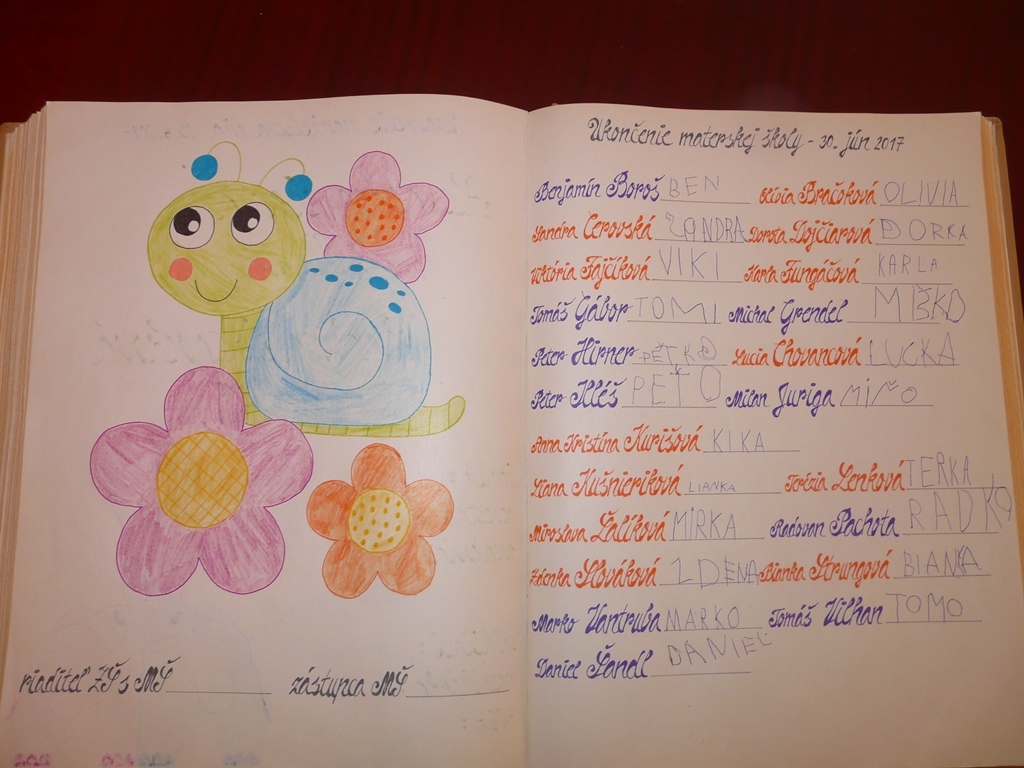 riaditeľ ZŠ s MŠ
zástupca MŠ
Ukončenie materskej školy - 30. jún 2017
Benjamín Boroš BEN Olívia Bračoková OLIVIA
Sandra Cerovská SANDRA Dorota Dojčiarová DORKA
Viktória Fajčíková VIKI Karla Fungáčová KARLA
Tomáš Gábor TOMI Michal Grendel MIŠKO
Peter Hirner PEŤKO Lucia Chovancová LUCKA
Peter Illéš PEŤO Milan Juriga MIŇO
Anna Kristína Kurišová KIKA
Liana Kušnieriková LIANKA Terézia Lenková TERKA
Miroslava Šalíková MIRKA Radovan Pachota RADKO
Zdenka Slováková ZDENA Bianka Strungová BIANKA
Marko Vantruba MARKO Tomáš Vilhan TOMO
Daniel Šandl DANIEL